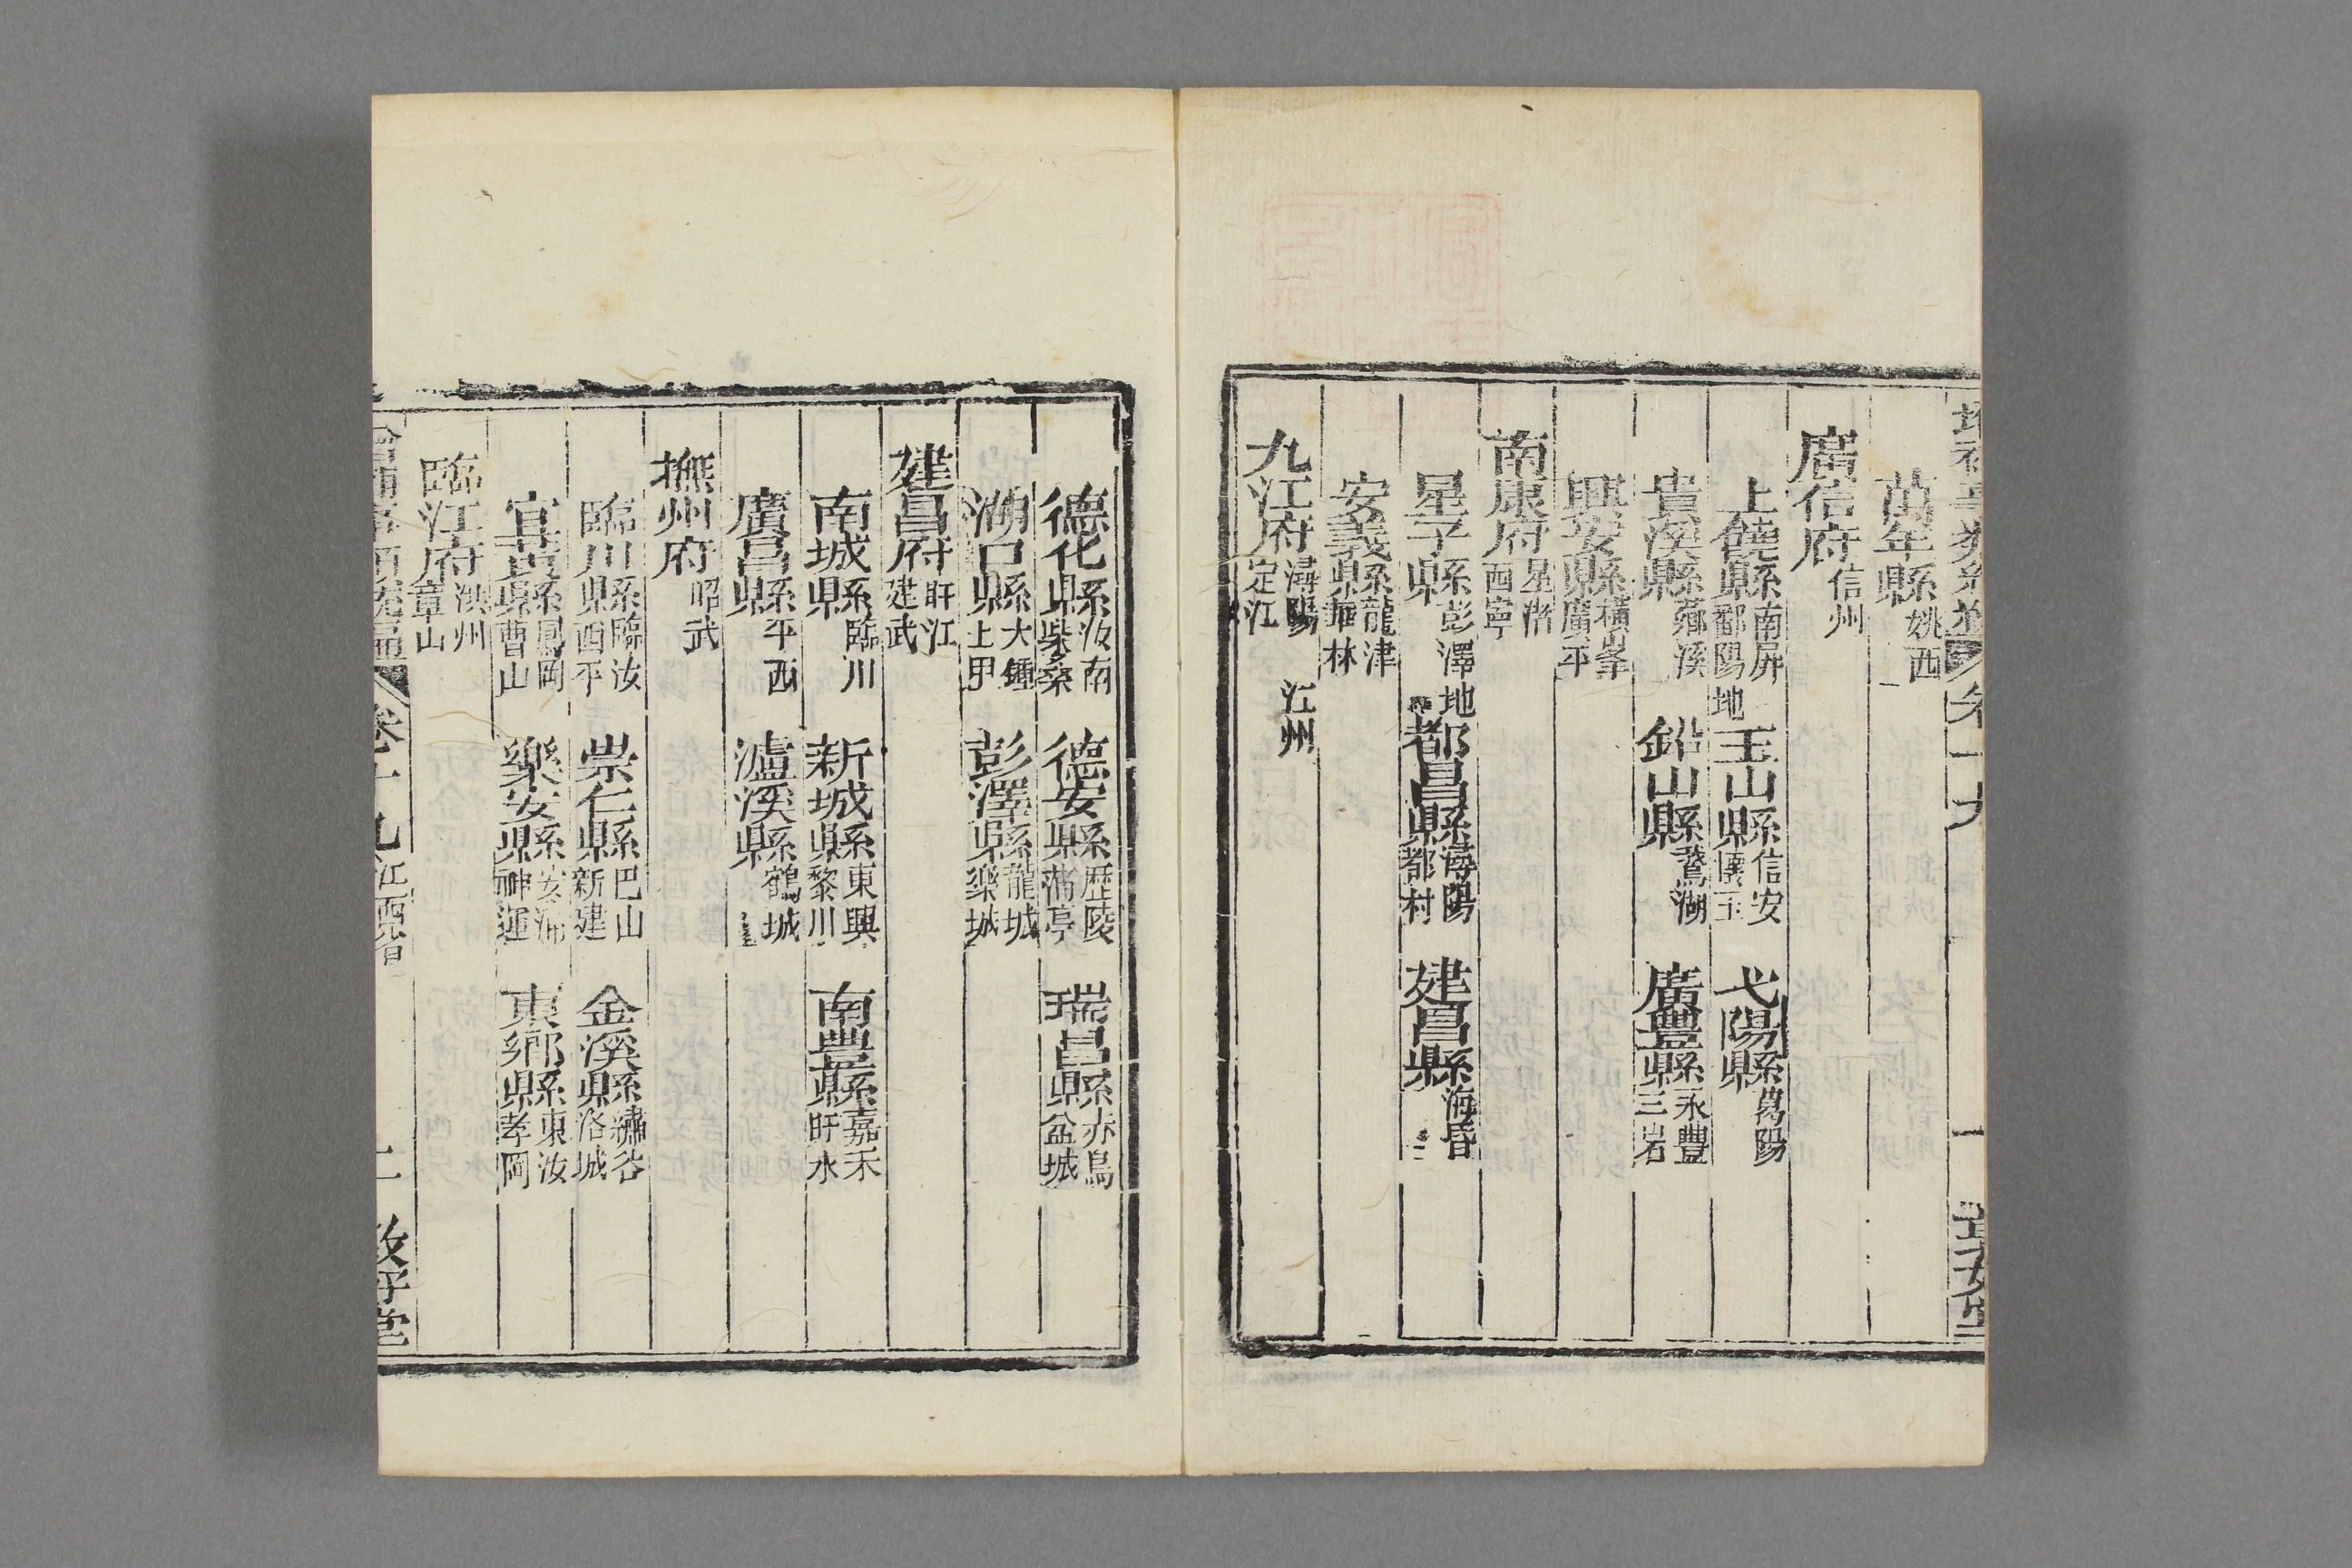 萬年縣 姚西
廣信府 信州
上饒縣 南屏 鄱陽地 玉山縣 信安 懷玉 弋陽縣 葛陽
貴溪縣 薌溪 鉛山縣 鵞湖 廣豐縣 永豐 三岩
興安縣 橫峯 廣平
南康府 星渚 西寧
星子縣 彭澤地 都昌縣 潯陽 都村 建昌縣 海昏
安義縣 龍津 華林
九江府 潯陽 定江 江州
德化縣 汝南 柴桑 德安縣 歷陵 蒲亭 瑞昌縣 赤烏 盆城
湖口縣 大鍾 上甲 彭澤縣 龍城 樂城
建昌府 盱江 建武
南城縣 臨川 新城縣 東興 黎川 南豐縣 嘉禾 盱水
廣昌縣 平西 瀘溪縣 鶴城
撫州府 昭武
臨川縣 臨汝 酉平 崇仁縣 巴山 新建 金溪縣 繡谷 洛城
宜黃縣 鳳岡 曹山 樂安縣 安浦 神運 東鄉縣 東汝 孝岡
臨江府 洪州 章山
卷十九 江西省 二 敦好堂